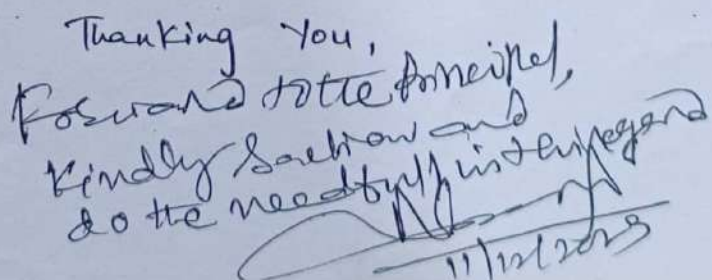 Thanking You,
Forward to the Principal,
Kindly Sanction and
do the needful in this regard
11/12/2023